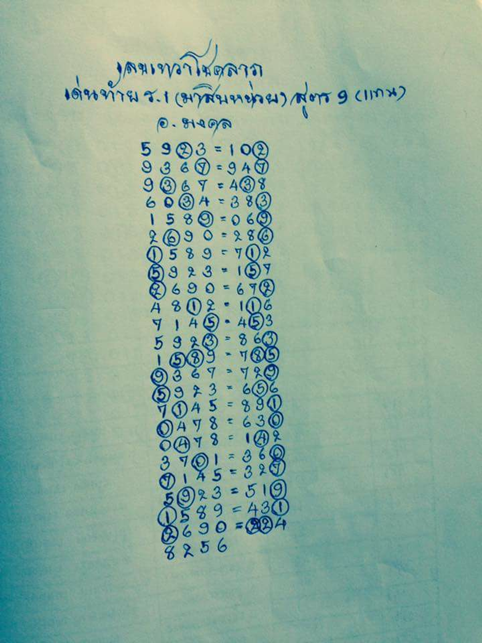 เลขเทวาโชคลาภ
เด่นท้าย ร.1 (มาสิบหน่วย) สูตร 9 (แทน)
อ. มงคล
5923 = 102
9367 = 947
9367 = 438
6034 = 383
1589 = 069
2690 = 286
1589 = 712
5923 = 157
2690 = 672
4812 = 116
7145 = 453
5923 = 863
1589 = 785
9367 = 729
5923 = 656
7145 = 891
0478 = 630
0478 = 142
3701 = 360
7145 = 327
5923 = 519
1589 = 431
2690 = 224
8256